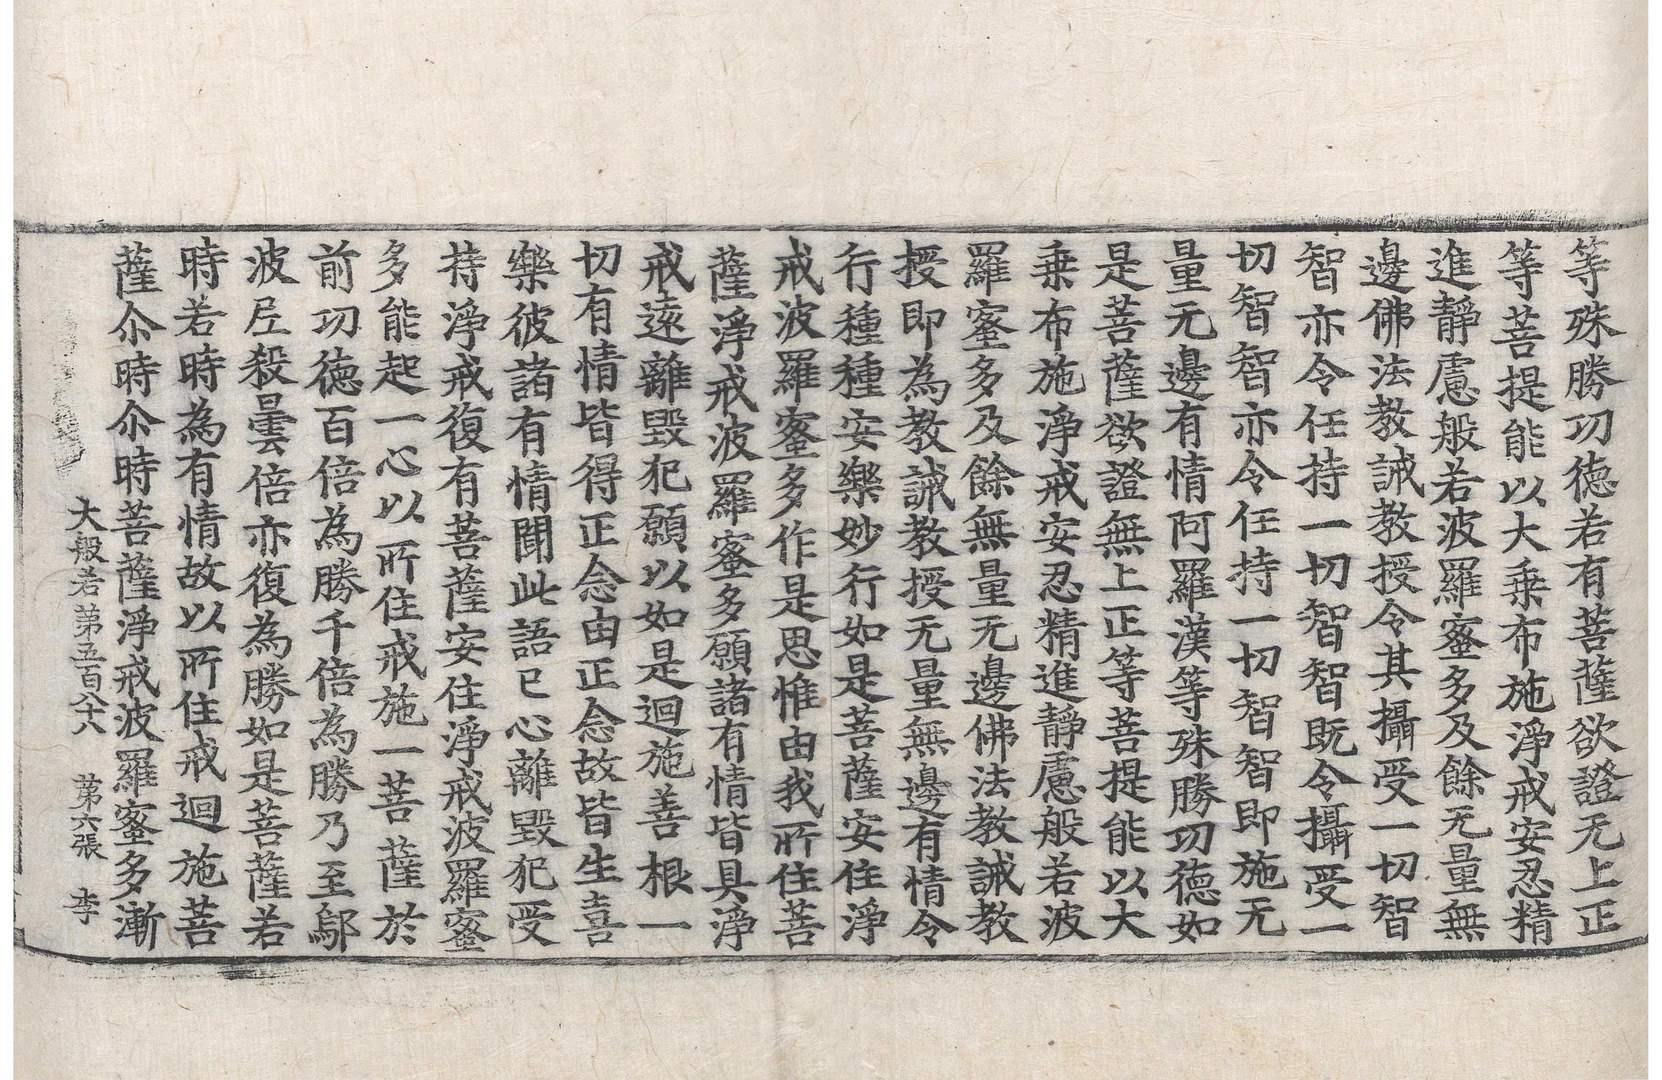 等殊勝功德若有菩薩欲證无上正
等菩提能以大乗布施淨戒安忍精
進靜慮般若波羅蜜多及餘无量無
邊佛法教誡教授令其攝受一切智
智亦令任持一切智智既令攝受一
切智智亦令任持一切智智即施无
量无邊有情阿羅漢等殊勝功德如
是菩薩欲證無上正等菩提能以大
乗布施淨戒安忍精進靜慮般若波
羅蜜多及餘無量无邊佛法教誡教
授即為教誡教授无量無邊有情令
行種種安樂妙行如是菩薩安住淨
戒波羅蜜多作是思惟由我所住菩
薩淨戒波羅蜜多願諸有情皆具淨
戒遠離毀犯願以如是迴施善根一
切有情皆得正念由正念故皆生喜
樂彼諸有情聞此語已心離毀犯受
持淨戒復有菩薩安住淨戒波羅蜜
多能起一心以所住戒施一菩薩於
前功德百倍為勝千倍為勝乃至鄔
波尼殺曇倍亦復為勝如是菩薩若
時若時為有情故以所住戒迴施菩
薩尒時尒時菩薩淨戒波羅蜜多漸
大般若第五百八十六 第六張 李